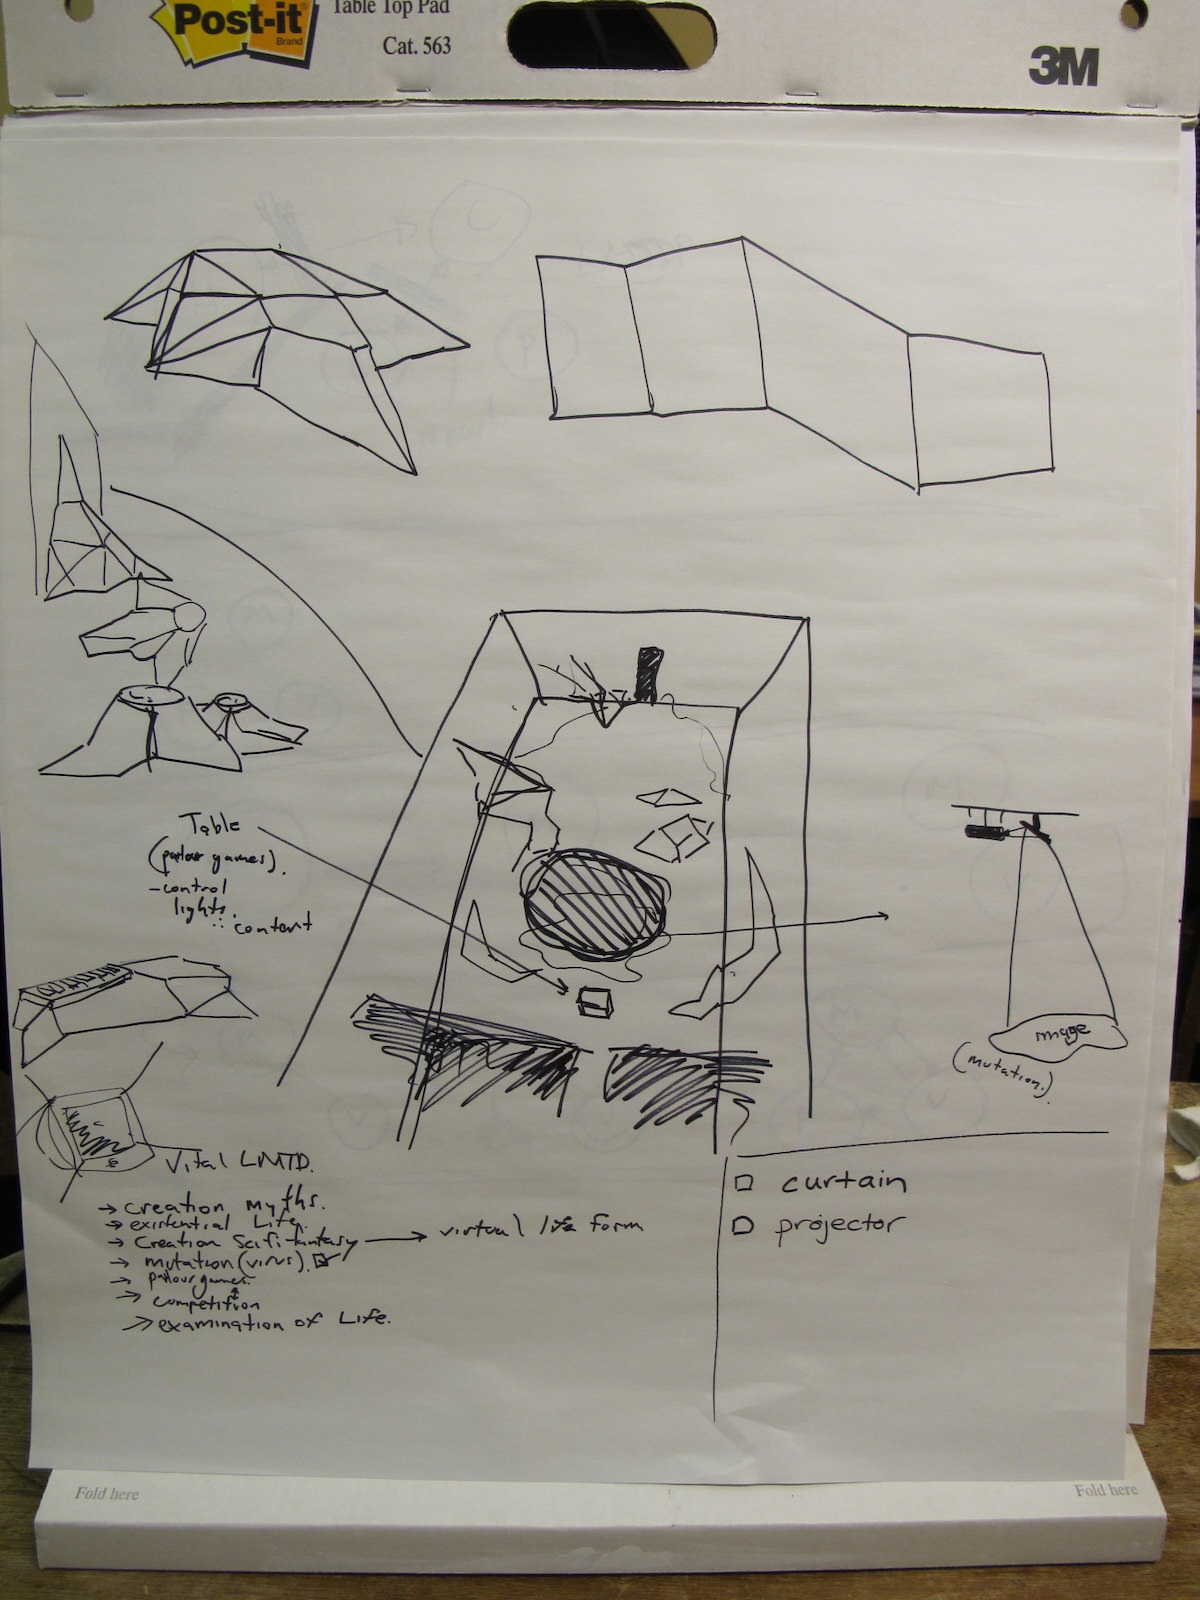 Post-it
Brand
Table Top Pad
Cat. 563
3M
Table
(parlour games).
-control
lights.
: content
image
(mutation.)
Vital LMTD.
→ creation myths.
→ existential Life.
→ Creation Scifi fantasy → virtual life form
→ mutation (virus). ☑
→ parlour games.
→ competition
→ examination of Life.
□ curtain
□ projector
Fold here
Fold here